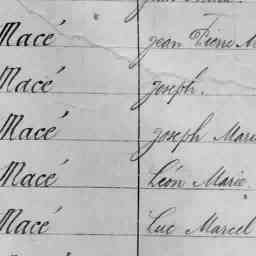 Macé Jean Pierre M
Macé Joseph.
Macé Joseph Marie
Macé Léon Marie
Macé Luc Marcel